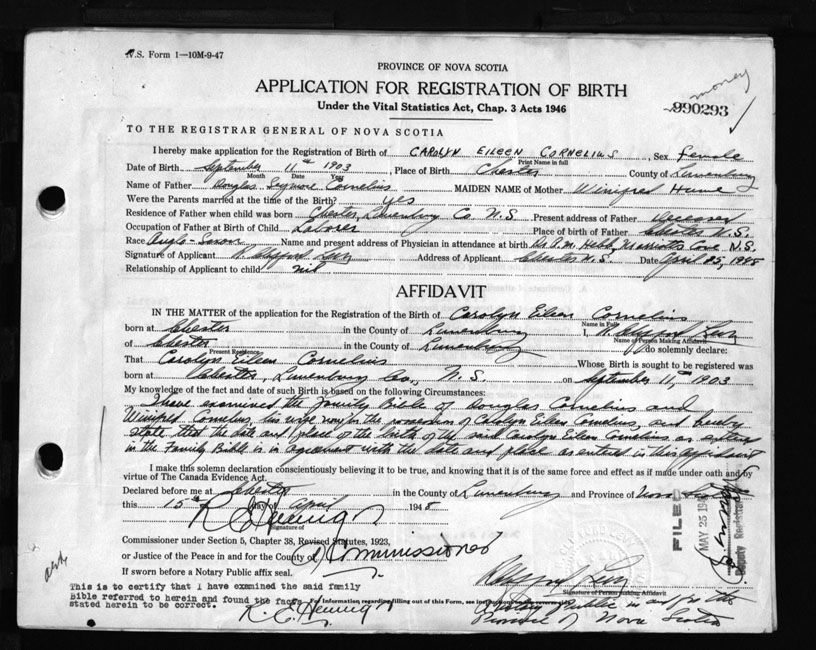 V.S. Form 1—10M-9-47
money
PROVINCE OF NOVA SCOTIA
APPLICATION FOR REGISTRATION OF BIRTH
990293
Under the Vital Statistics Act, Chap. 3 Acts 1946
TO THE REGISTRAR GENERAL OF NOVA SCOTIA
I hereby make application for the Registration of Birth of CAROLYN EILEEN CORNELIUS, Sex female
Print Name in full
Date of Birth September 11th 1903, Place of Birth Chester County of Lunenburg
Month Date Year
Name of Father Douglas Seymore Cornelius MAIDEN NAME of Mother Winifred Hume
Were the Parents married at the time of the Birth? Yes
Residence of Father when child was born Chester, Lunenburg Co. N.S. Present address of Father Deceased
Occupation of Father at Birth of Child Laborer Place of birth of Father Chester N.S.
Race Anglo-Saxon Name and present address of Physician in attendance at birth Dr. A.M. Hebb, Marriotts Cove, N.S.
Signature of Applicant Address of Applicant Chester N.S. Date April 25, 1948
Relationship of Applicant to child nil
AFFIDAVIT
IN THE MATTER of the application for the Registration of the Birth of Carolyn Eileen Cornelius
Name in Full
born at Chester in the County of Lunenburg I,
Name of Person Making Affidavit
of Chester in the County of Lunenburg do solemnly declare:
Present Residence
That Carolyn Eileen Cornelius Whose Birth is sought to be registered was
born at Chester, Lunenburg Co., N.S. on September 11th 1903
My knowledge of the fact and date of such Birth is based on the following Circumstances:
I have examined the Family Bible of Douglas Cornelius and
Winifred Cornelius, his wife now in the possession of Carolyn Eileen Cornelius, and hereby
state that the date and place of the birth of the said Carolyn Eileen Cornelius as entered
in the Family Bible is in agreement with the date and place as entered in this affidavit
I make this solemn declaration conscientiously believing it to be true, and knowing that it is of the same force and effect as if made under oath and by
virtue of The Canada Evidence Act.
Declared before me at Chester in the County of Lunenburg and Province of Nova Scotia
this 15th day of April 1948
R C Hennig
Signature of
Commissioner under Section 5, Chapter 38, Revised Statutes, 1923,
or Justice of the Peace in and for the County of A Commissioner
If sworn before a Notary Public affix seal.
Signature of Person making Affidavit
This is to certify that I have examined the said family
Bible referred to herein and found the facts
stated herein to be correct.
For Information regarding filling out of this Form, see
R. C. Hennig
A Notary Public in and for the
Province of Nova Scotia
FILED
MAY 25 19
Deputy Registrar